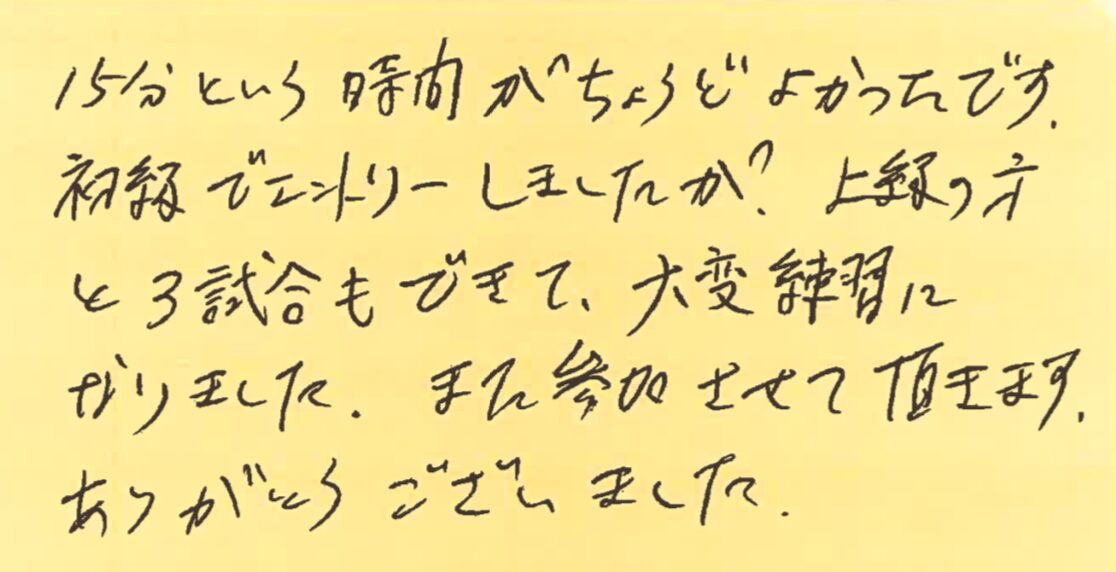 15分という時間がちょうどよかったです.
初級でエントリーしましたが、上級の方
と3試合もできて、大変練習に
なりました. また参加させて頂きます.
ありがとうございました.